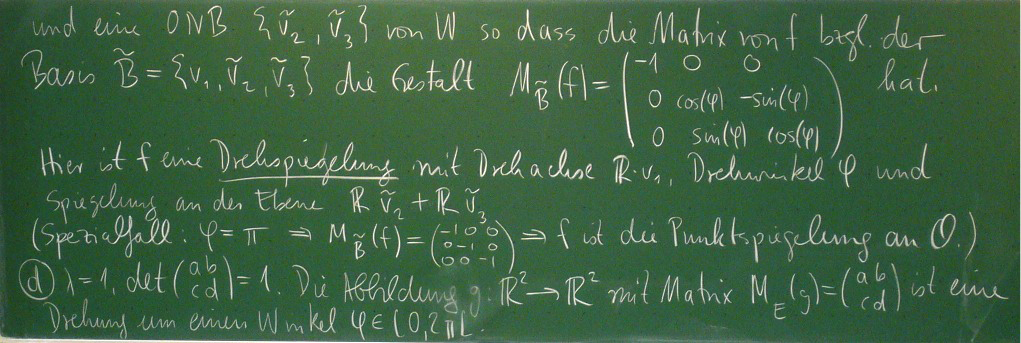 und eine ONB {ṽ₂, ṽ₃} von W so dass die Matrix von f bzgl. der
Basis B̃ = {v₁, ṽ₂, ṽ₃} die Gestalt M_B̃(f) = (-1 0 0
0 cos(φ) -sin(φ)
0 sin(φ) cos(φ)) hat.
Hier ist f eine Drehspiegelung mit Drehachse ℝ·v₁, Drehwinkel φ und
Spiegelung an der Ebene ℝ ṽ₂ + ℝ ṽ₃
(Spezialfall: φ = π ⇒ M_B̃(f) = (-1 0 0; 0 -1 0; 0 0 -1) ⇒ f ist die Punktspiegelung an O.)
ⓓ λ=1, det(a b; c d) = 1. Die Abbildung g: ℝ² → ℝ² mit Matrix M_E(g) = (a b; c d) ist eine
Drehung um einen Winkel φ ∈ [0, 2π[.